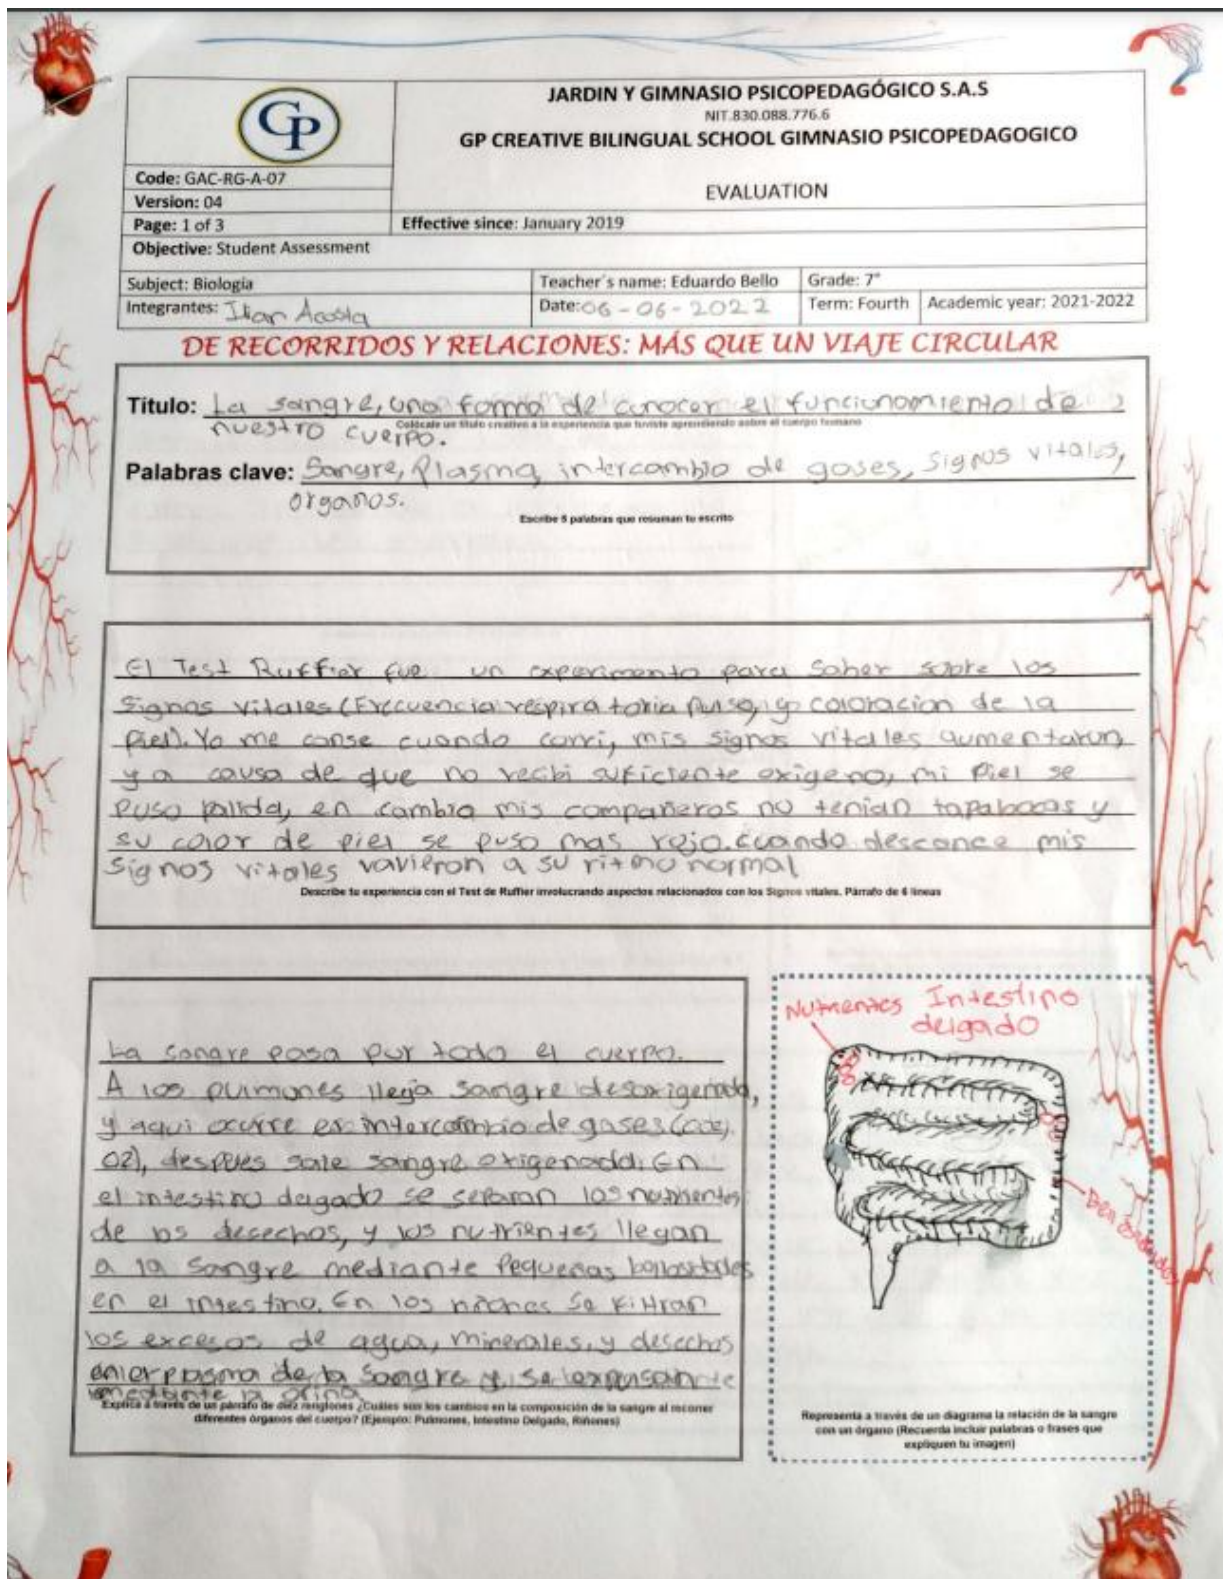 GP
JARDIN Y GIMNASIO PSICOPEDAGÓGICO S.A.S
NIT.830.088.776.6
GP CREATIVE BILINGUAL SCHOOL GIMNASIO PSICOPEDAGOGICO
EVALUATION
Code: GAC-RG-A-07
Version: 04
Page: 1 of 3
Effective since: January 2019
Objective: Student Assessment
Subject: Biología
Teacher´s name: Eduardo Bello
Grade: 7°
Integrantes: Acosta
Date: 06-06-2022
Term: Fourth
Academic year: 2021-2022
DE RECORRIDOS Y RELACIONES: MÁS QUE UN VIAJE CIRCULAR
Título: La sangre, una forma de conocer el funcionomiento de
nuestro cuerpo.
Colócale un título creativo a la experiencia que tuviste aprendiendo sobre el cuerpo humano
Palabras clave: Sangre, Plasma, intercambio de gases, signos vitales,
organos.
Escribe 5 palabras que resuman tu escrito
El Test Ruffier fue un experimento para saber sobre los
signos vitales (Frecuencia respiratoria pulso, y coloracion de la
piel). Yo me canse cuando corri, mis signos vitales aumentaron
y a causa de que no recibi suficiente oxigeno, mi piel se
puso palida, en cambio mis compañeros no tenian tapabocas y
su color de piel se puso mas rojo. cuando descance mis
signos vitales vavieron a su ritmo normal
Describe tu experiencia con el Test de Ruffier involucrando aspectos relacionados con los Signos vitales. Párrafo de 6 líneas
La sangre pasa por todo el cuerpo.
A los pulmones llega sangre desoxigenada,
y aqui ocurre el intercambio de gases (co2,
O2), despues sale sangre oxigenada. En
el intestino delgado se separan los nutrientes
de los desechos, y los nutrientes llegan
a la sangre mediante Pequeñas
en el intestino. En los riñones se Filtran
los excesos de agua, minerales, y desechos
en el plasma de la sangre y se
mediante la orina
Explica a través de un párrafo de diez renglones ¿Cuáles son los cambios en la composición de la sangre al recorrer
diferentes órganos del cuerpo? (Ejemplo: Pulmones, Intestino Delgado, Riñones)
Nutrientes
Intestino
delgado
Representa a través de un diagrama la relación de la sangre
con un órgano (Recuerda incluir palabras o frases que
expliquen tu imagen)